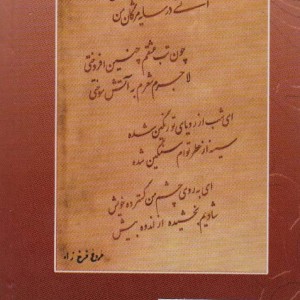 آتشی در سایه مژگان من
چون تب عشقم چنین افروختی
لاجرم شعرم به آتش سوختی
ای شب از رویای تو رنگین شده
سینه از عطر توام سنگین شده
ای به روی چشم من گسترده خویش
شادیم بخشیده از اندوه بیش
فروغ فرخ زاد